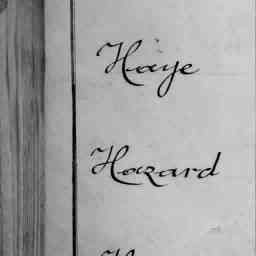 Haye
Hazard